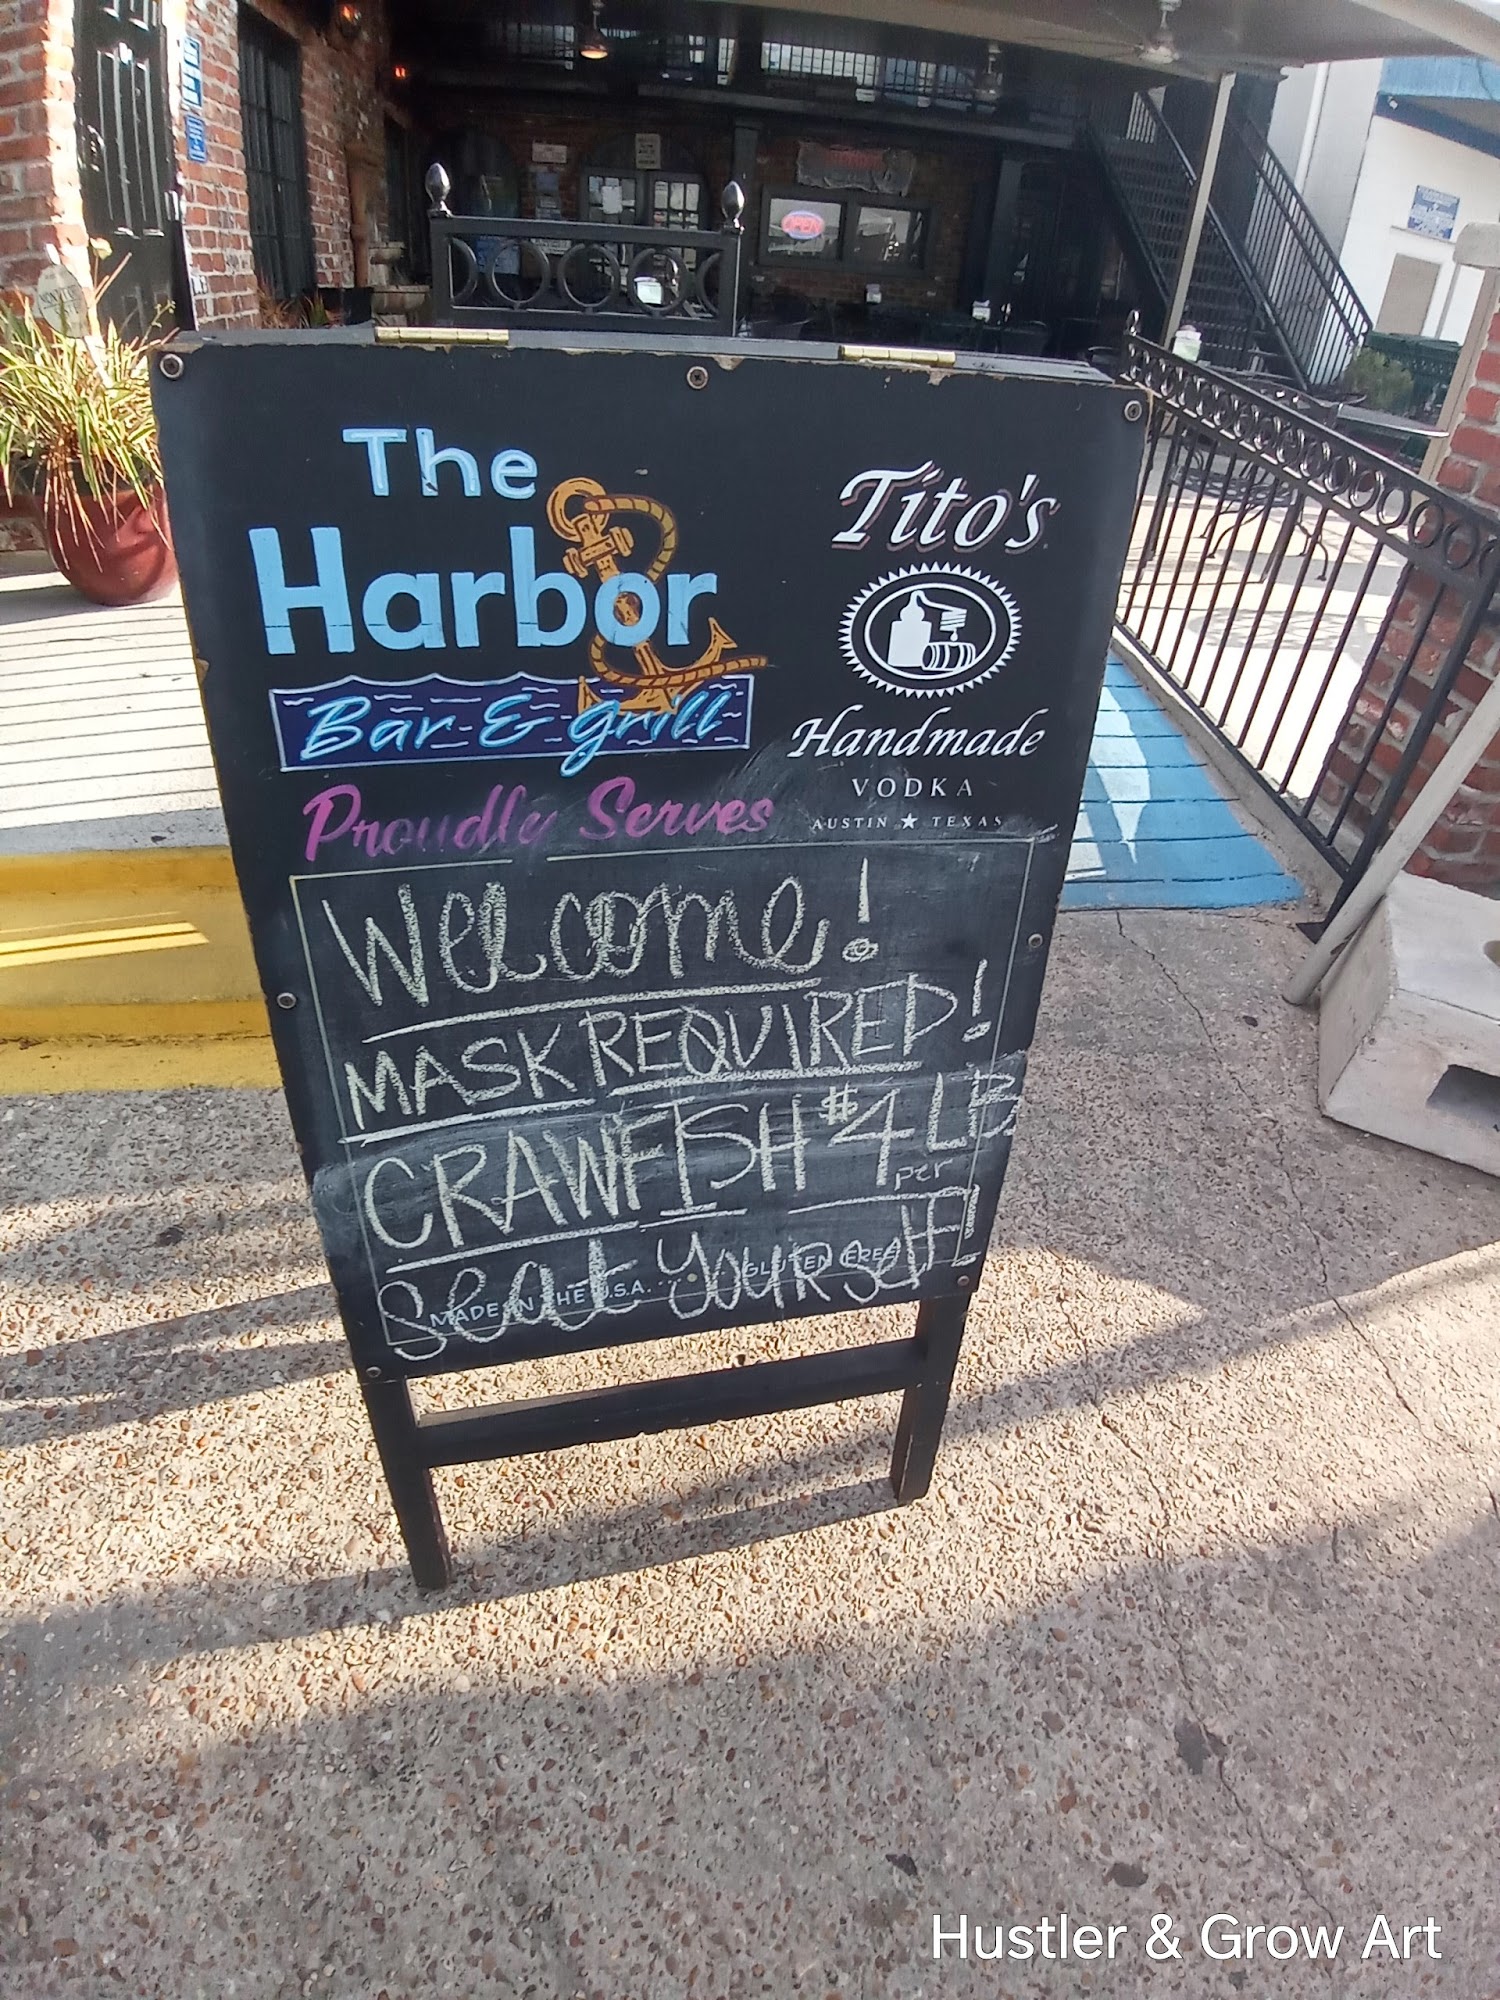 The
Harbor
Bar & Grill
Proudly Serves
Tito's
Handmade
VODKA
AUSTIN ★ TEXAS
Welcome!
MASK REQUIRED!
CRAWFISH $4 per LB
Seat Yourself
MADE IN THE U.S.A.
GLUTEN FREE
OPEN
Hustler & Grow Art